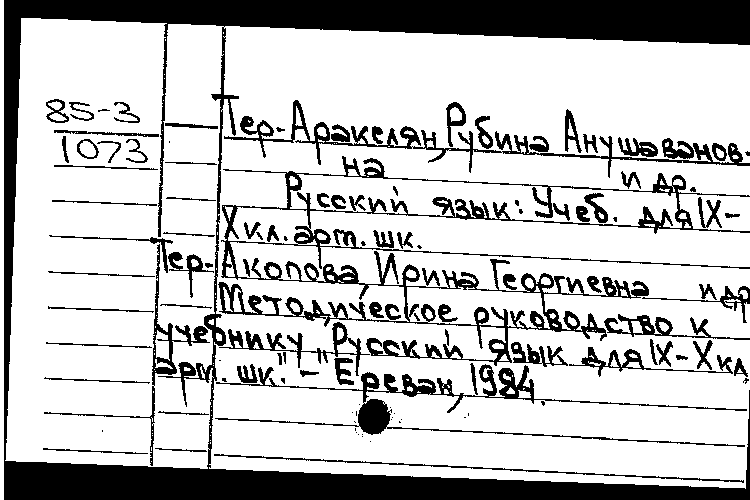 85-3
1073
Тер-Аракелян, Рубина Анушаванов-
на и др.
Русский язык: Учеб. для IX-
X кл. арт. шк.
Тер-Акопова, Ирина Георгиевна и др
Методическое руководство к
учебнику "Русский язык для IX-X кл,
арт. шк." - Ереван, 1984.